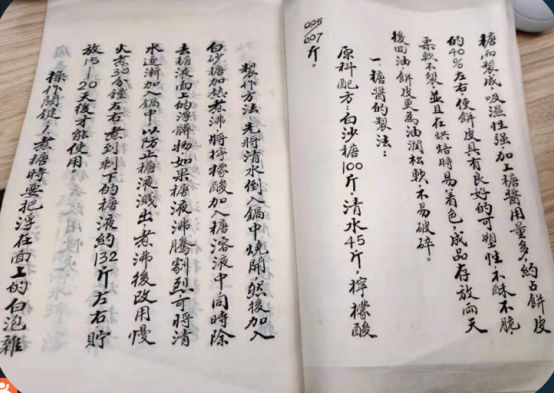 糖而製成吸濕性强加上糖醬用量多,約占餅皮
的40%左右使餅皮具有良好的可塑性不酥不脆,
柔軟不裂,並且在烘焙時易着色,成品存放兩天
後回油餅皮更為油潤松軟,不易破碎。
一、糖醬的製法:
原料配方:白沙糖100斤,清水45斤,檸檬酸
095
607斤。
製作方法:先將清水倒入鍋中燒開,然後加入
白沙糖加熱煮沸,將檸檬酸加入糖溶液中同時除
去糖液面上的浮髒物如果糖液沸騰劇烈可將清
水逐漸加入鍋中以防止糖液溅出,煮沸後改用慢
火煮30分鐘左右煮到剩下的糖液約132斤左右貯
放15—20天後才能使用
操作関鍵:煮糖時要把浮在面上的白泡雜